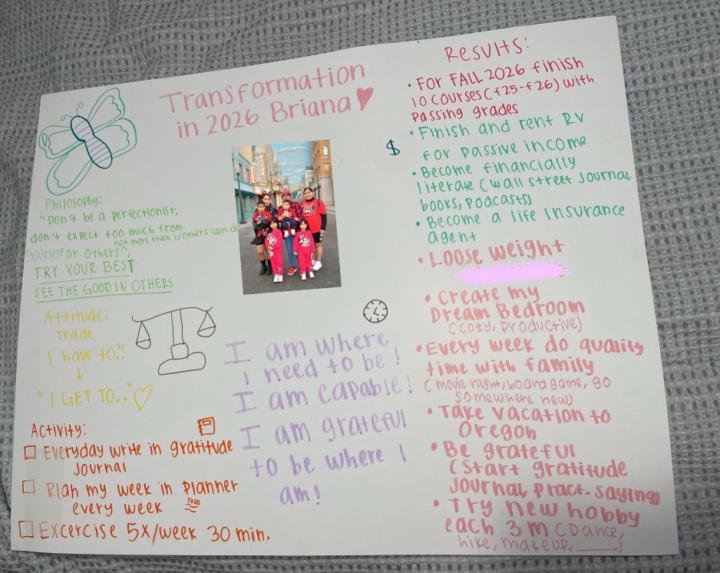 Transformation
in 2026 Briana
Philosophy:
"Don't be a perfectionist,
don't expect too much from
yourself or others",
not more than i/others can do
TRY YOUR BEST
SEE THE GOOD IN OTHERS
Attitude:
Trade
"I have to.."
"I GET TO.."
Activity:
Everyday write in gratitude
Journal
Plan my week in Planner
every week
Excercise 5x/week 30 min.
I am where
I need to be!
I am capable!
I am grateful
to be where I
am!
Results:
• For FALL 2026 finish
10 courses (f25-f26) with
passing grades
$
• Finish and rent RV
for passive income
• Become financially
literate (wall street journal
books, podcasts)
• Become a life insurance
agent
• Loose weight
• Create my
Dream Bedroom
(cozy, productive)
• Every week do quality
time with family
(movie night, board game, go
somewhere new)
• Take vacation to
Oregon
• Be grateful
(Start gratitude
journal, pract. saying)
• Try new hobby
each 3 M (Dance,
hike, makeup, ____)